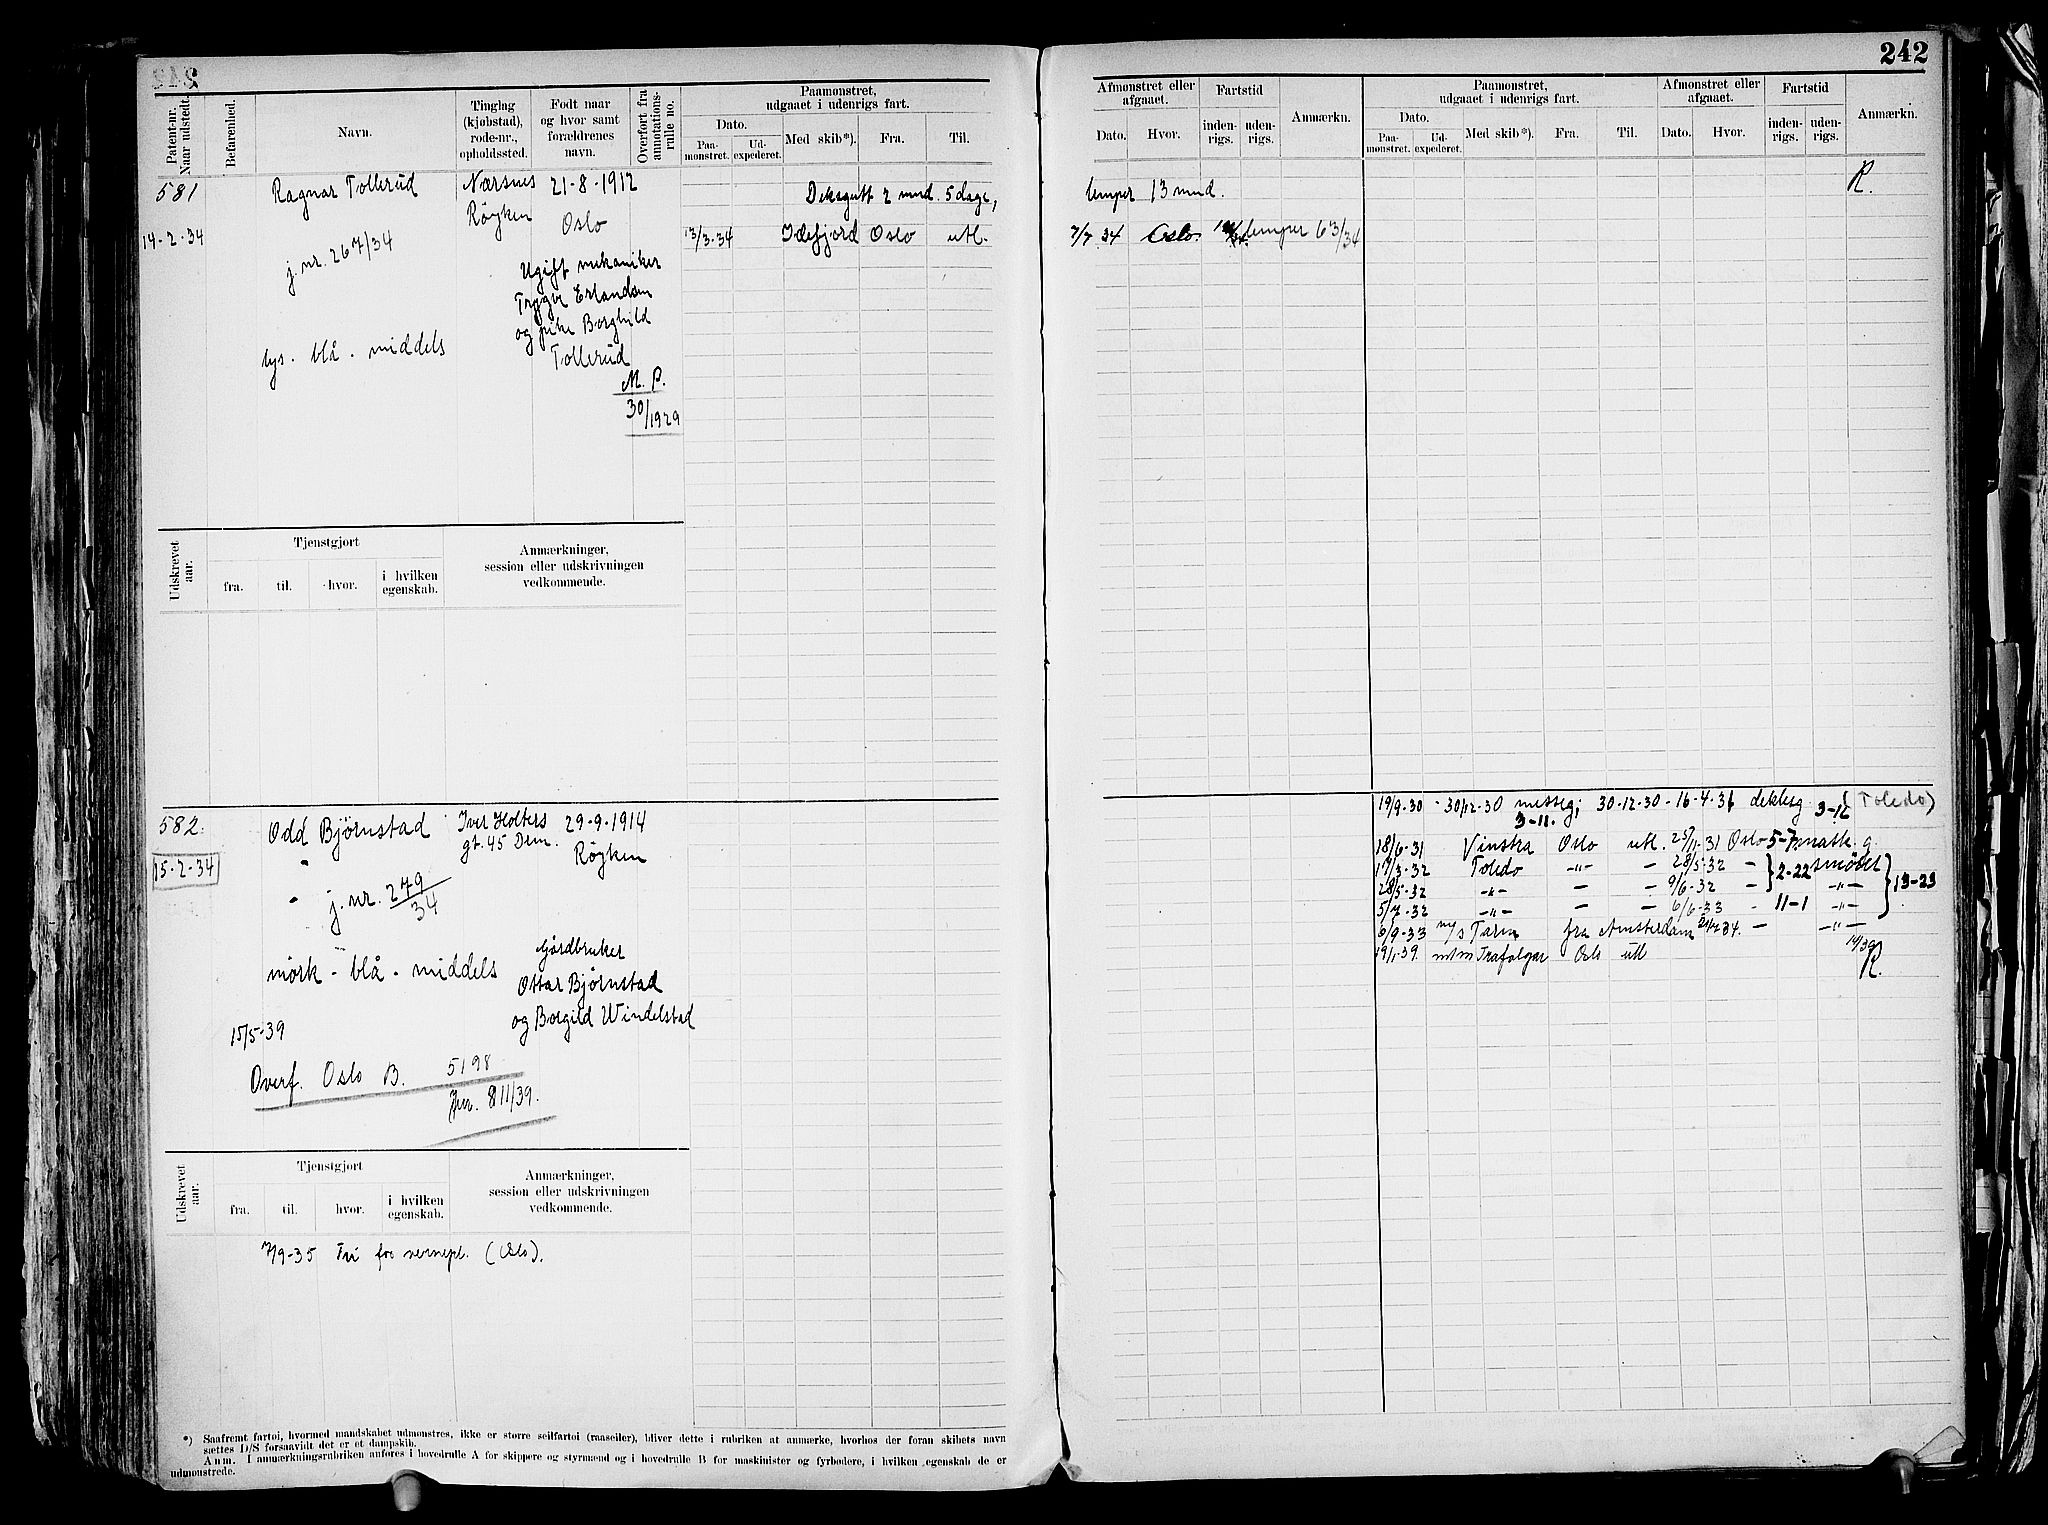 242
Patent-nr. Naar udstedt.
Befarenhed.
Navn.
Tinglag (kjøbstad), rode-nr., opholdssted.
Født naar og hvor samt forældrenes navn.
Overført fra annotations-rulle no.
Paamonstret, udgaaet i udenrigs fart.
Dato.
Paa-monstret.
Ud-expederet.
Med skib*).
Fra.
Til.
Afmonstret eller afgaaet.
Dato.
Hvor.
Fartstid
inden-rigs.
uden-rigs.
Anmærkn.
Paamonstret, udgaaet i udenrigs fart.
Dato.
Paa-monstret.
Ud-expederet.
Med skib*).
Fra.
Til.
Afmonstret eller afgaaet.
Dato.
Hvor.
Fartstid
inden-rigs.
uden-rigs.
Anmærkn.
581 Ragnar Tollerud Nærsnes 21-8-1912 Deksgutt 2 mnd. 5 dage, lemper 13 mnd. R.
Røyken Oslo
14-2-34 13/3-34 Idefjord Oslo utl. 7/7 34 Oslo. lemper 63/34
j. nr. 267/34
Ugift mekaniker
Trygve Erlandsen
og pike Borghild
Tollerud
lys. blå. middels
M. P.
30/1929
Udskrevet aar.
Tjenstgjort
fra.
til.
hvor.
i hvilken egenskab.
Anmærkninger, session eller udskrivningen vedkommende.
582. Odd Bjørnstad Iver Holters 29-9-1914
gt. 45 Dem. Røyken
15-2-34
j. nr. 279/34
mørk - blå - middels
Gårdbruker
Ottar Bjørnstad
og Borgild Windelstad
15/5-39
Overf. Oslo B. 5198
Jnr. 811/39.
19/9-30 - 30/12-30 messeg; 30-12-30 - 16-4-31 dekksg 3-12 (Toledo)
3-11.
18/6-31 Vinstra Oslo utl. 25/11-31 Oslo 5-7 matk. g.
17/3-32 Toledo -"- - 28/5-32 - 2-22 smører
28/5-32 -"- - - 9/6-32 - -"- 13-23
5/7-32 -"- - - 6/6-33 - 11-1 -"-
6/9-33 m/s Taria fra Amsterdam - -"-
19/1-39. m/m Trafalgar Oslo utl R.
Udskrevet aar.
Tjenstgjort
fra.
til.
hvor.
i hvilken egenskab.
Anmærkninger, session eller udskrivningen vedkommende.
7/9-35 Fri for vernepl. (Oslo).
*) Saafremt fartøi, hvormed mandskabet udmønstres, ikke er større seilfartøi (raaseiler), bliver dette i rubriken at anmærke, hvorhos der foran skibets navn
sættes D/S forsaavidt det er et dampskib.
Anm. I anmærkningsrubriken anføres i hovedrulle A for skippere og styrmænd og i hovedrulle B for maskinister og fyrbødere, i hvilken egenskab de er
udmønstrede.